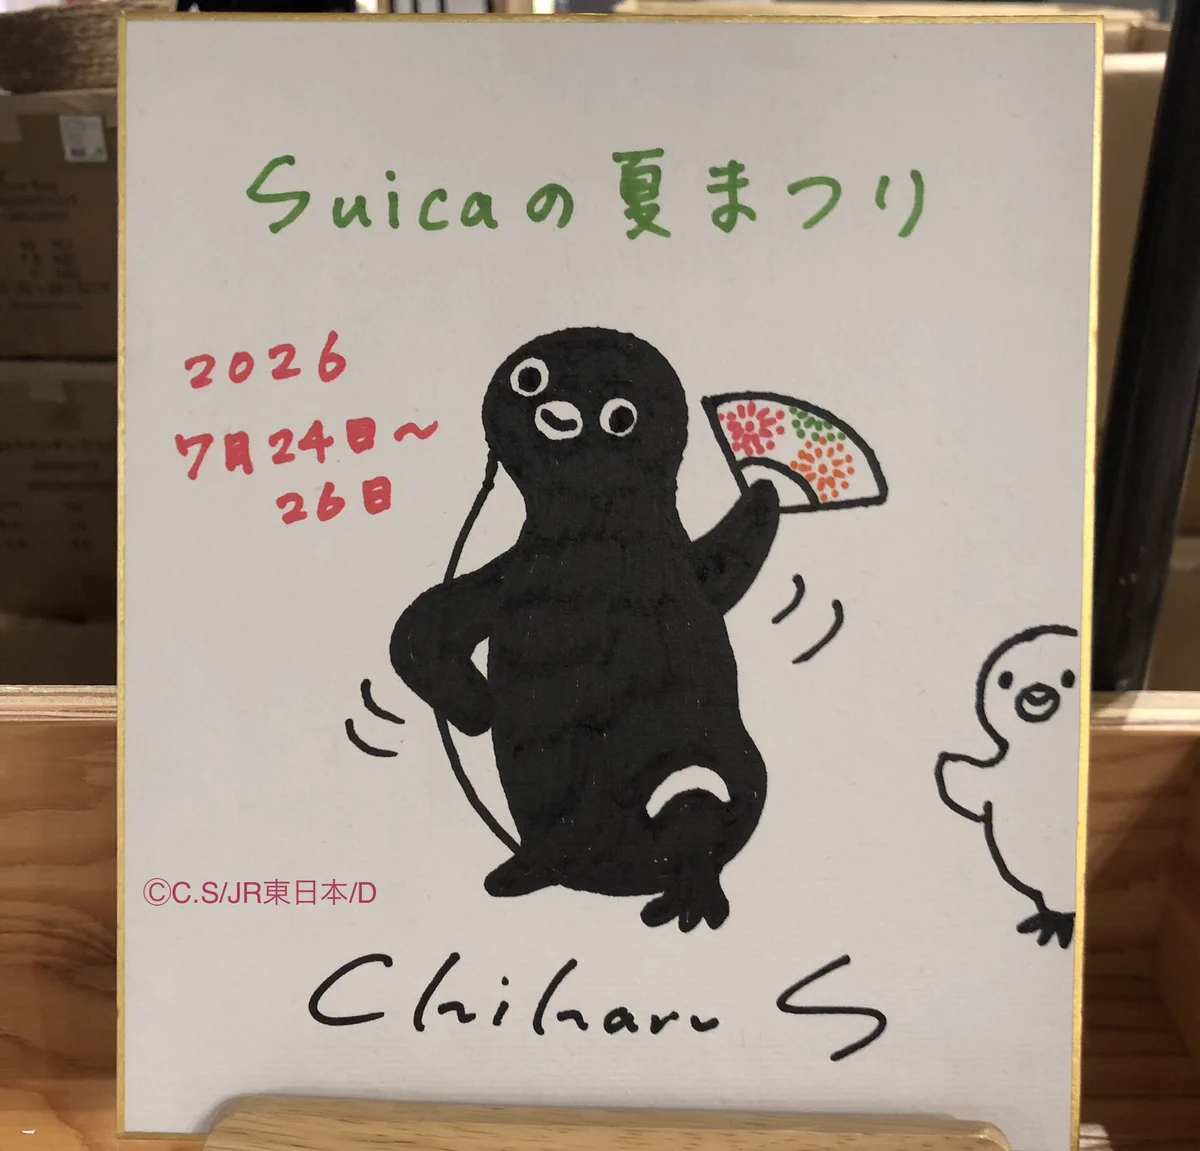 Suicaの夏まつり
2026
7月24日～
26日
©C.S/JR東日本/D
Chiharu S